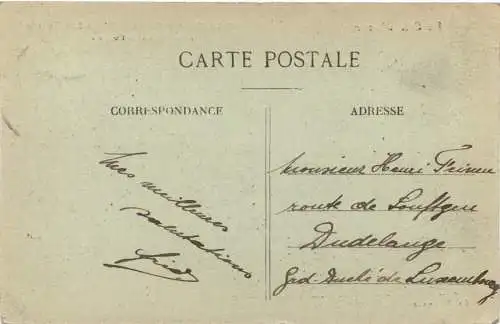 CARTE POSTALE
CORRESPONDANCE
ADRESSE
mes meilleures
salutations
monsieur Henri
route de
Dudelange
Grd-Duché de Luxembourg